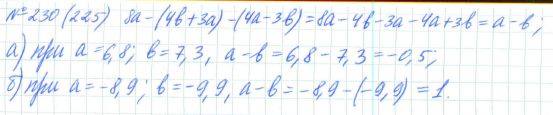 №230 (225) 8a-(4b+3a)-(4a-3b)=8a-4b-3a-4a+3b=a-b;
а) при a=6,8; b=7,3, a-b=6,8-7,3=-0,5;
б) при a=-8,9; b=-9,9, a-b=-8,9-(-9,9)=1.